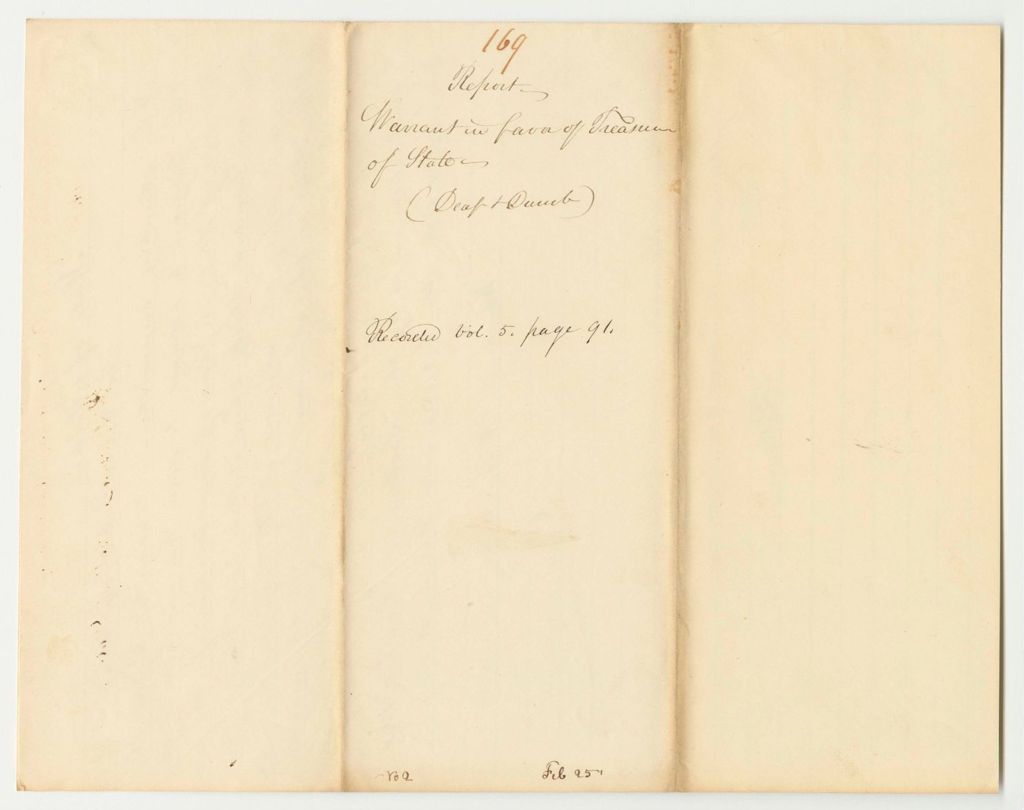 169
Report
Warrant in favor of Treasurer
of State
(Deaf & Dumb)
Recorded Vol. 5. page 91.
No 2
Feb 25